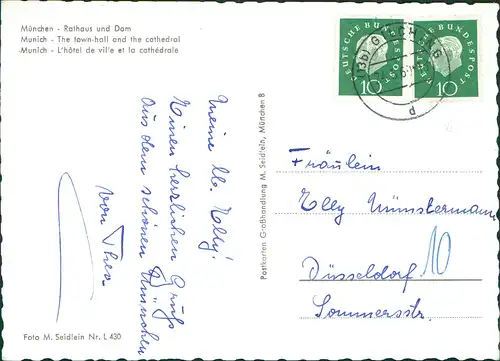 München - Rathaus und Dom
Munich - The town-hall and the cathedral
Munich - L'hôtel de ville et la cathédrale
Meine lb. Elly!
Einen herzlichen Gruß
aus dem schönen München
von Thea
Foto M. Seidlein Nr. L 430
Postkarten Großhandlung M. Seidlein, München 8
DEUTSCHE BUNDESPOST
10
DEUTSCHE BUNDESPOST
10
(13b)
d
Fräulein
Elly Münstermann
Düsseldorf 10
Sommersstr.